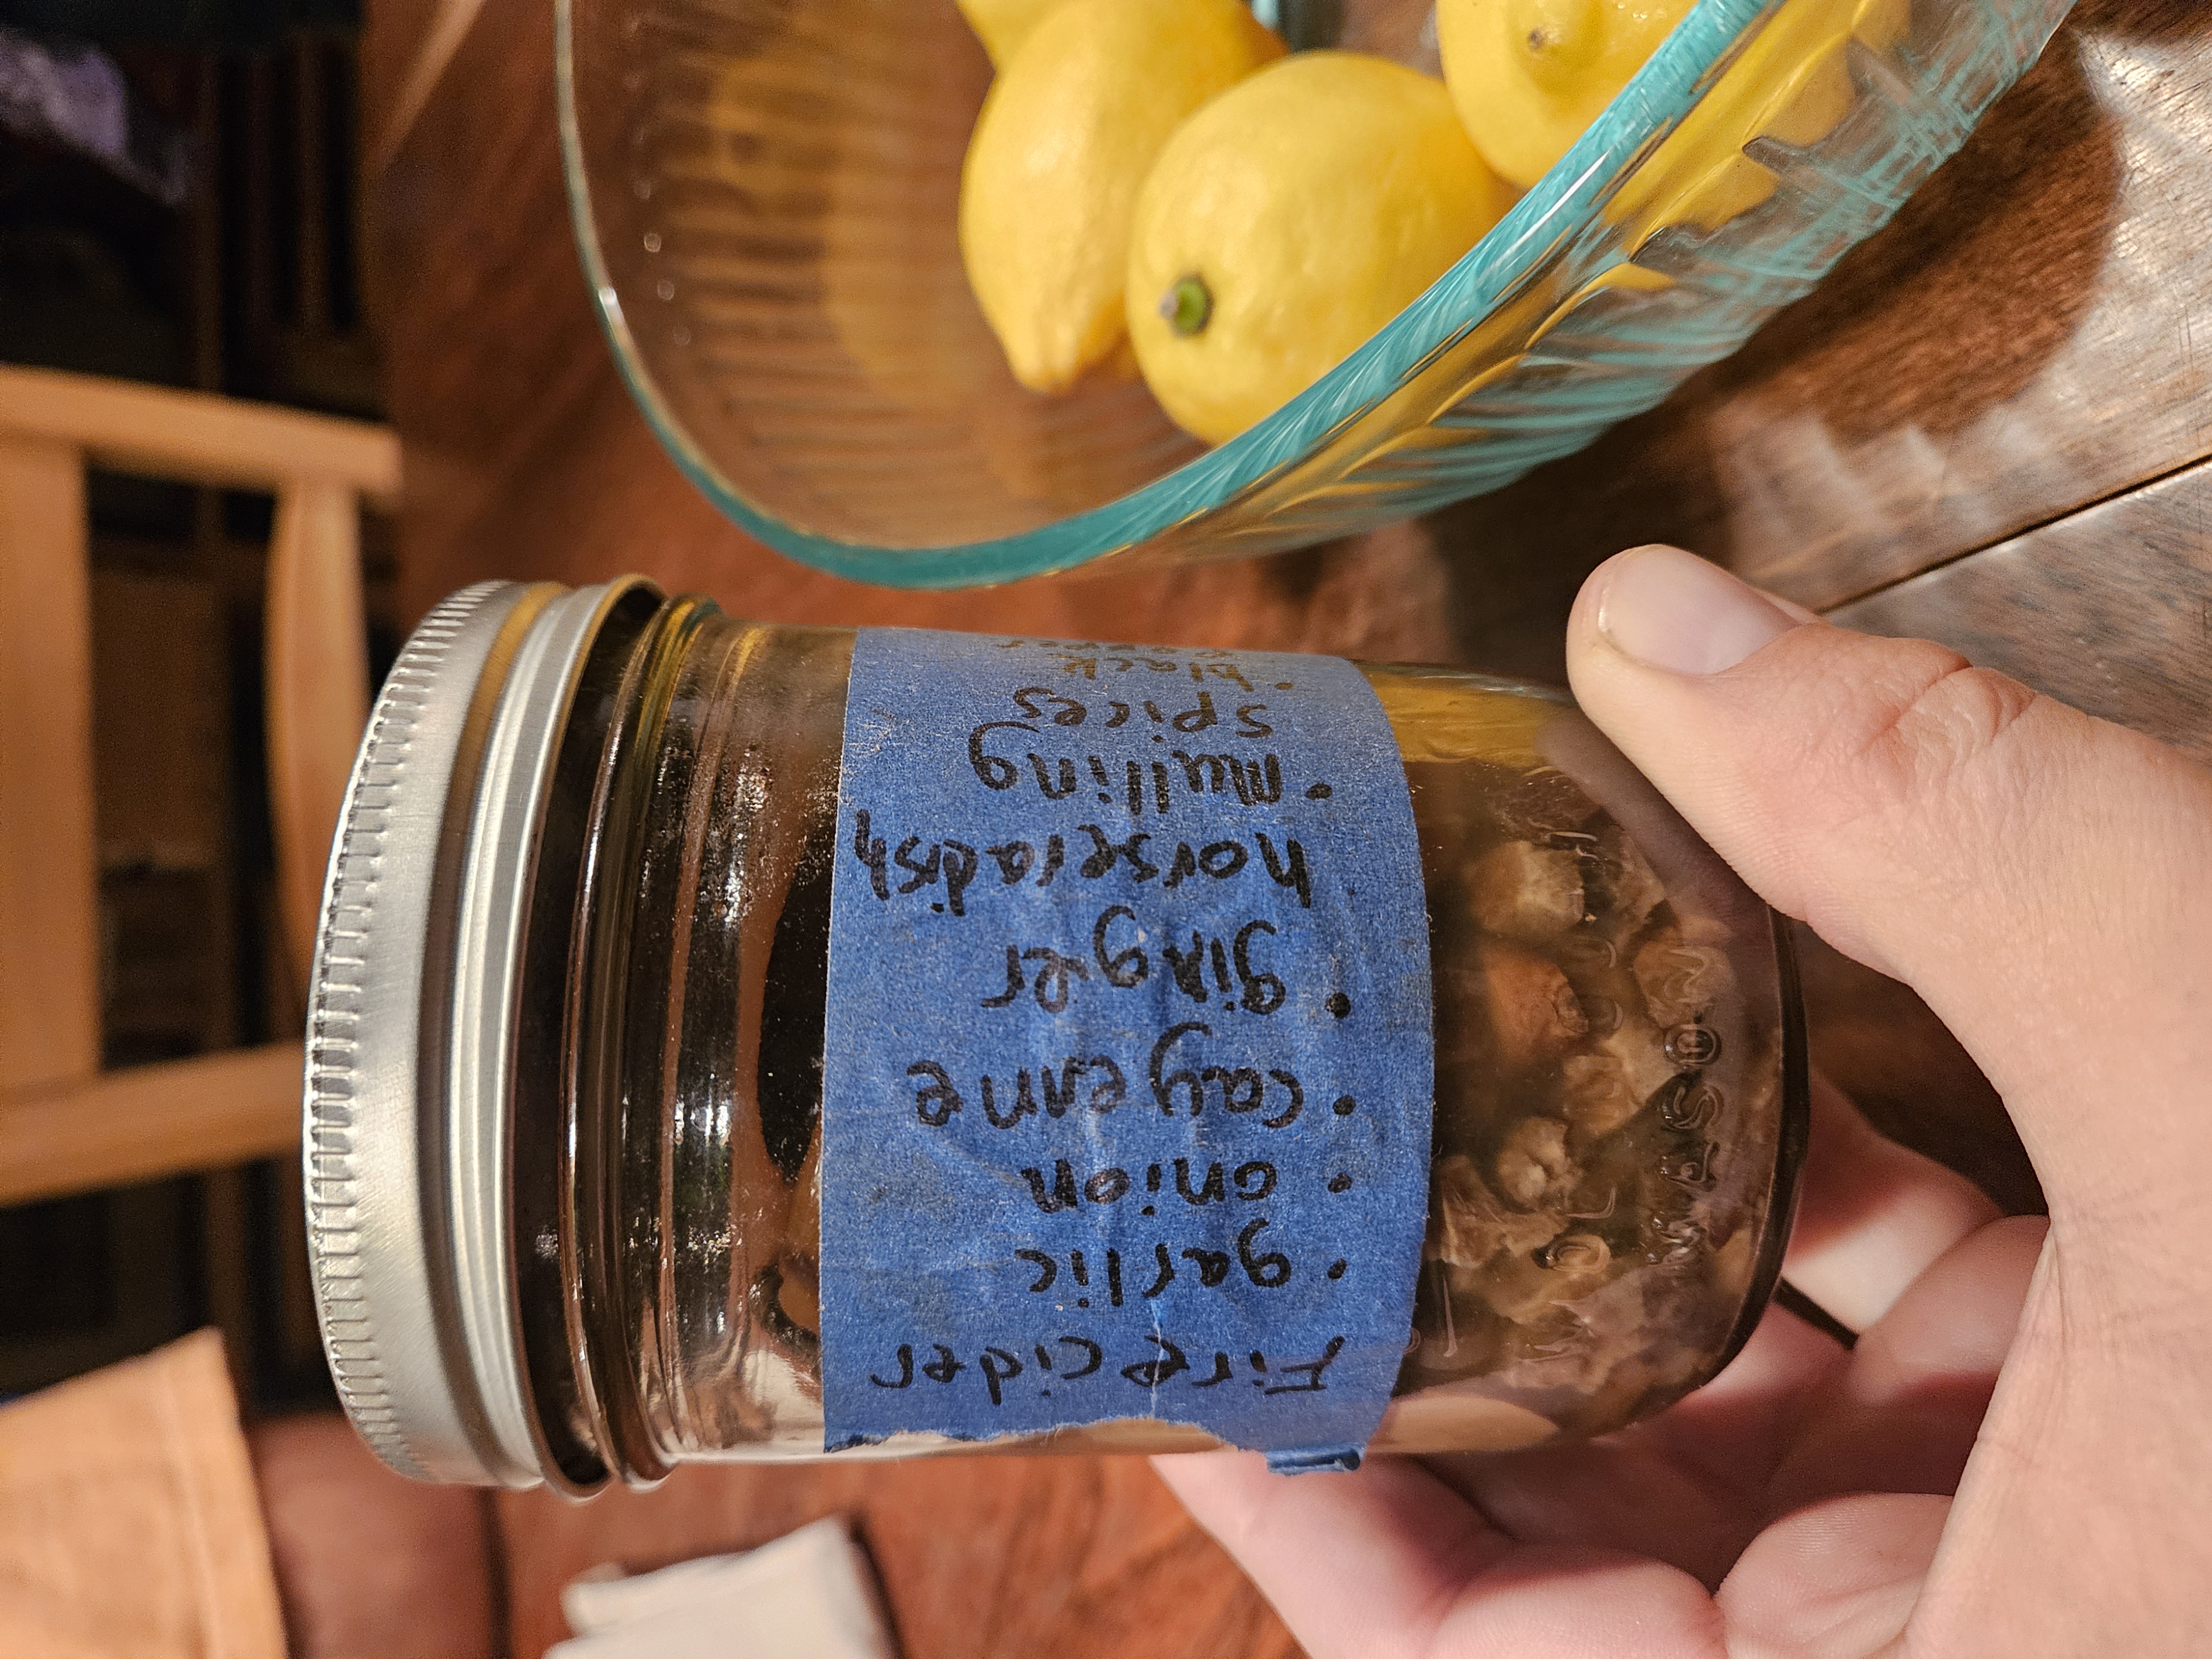 Fire cider
• garlic
• onion
• cayenne
• ginger
horseradish
• mulling
spices
• black
pepper
MASON